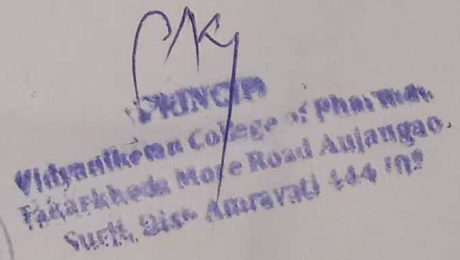 PRINCIPA
Vidyaniketan College of Pharmacy,
Takarkheda More Road Anjangao,
Surji, Dist. Amravati 444